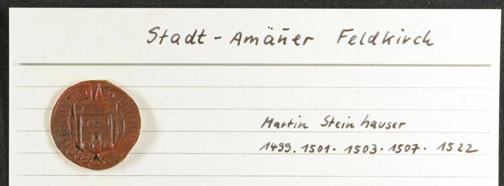 Stadt-Amañer Feldkirch
Martin Steinhauser
1499. 1501. 1503. 1507. 1522